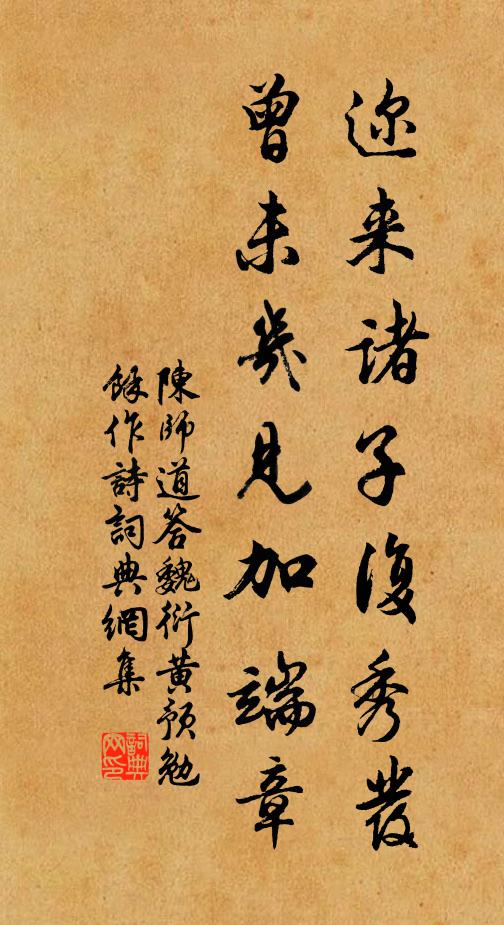 迩来诸子復秀發
曾未幾見加端章
陳師道答魏衍黄預勉
餘作詩詞典網集
詞典網印